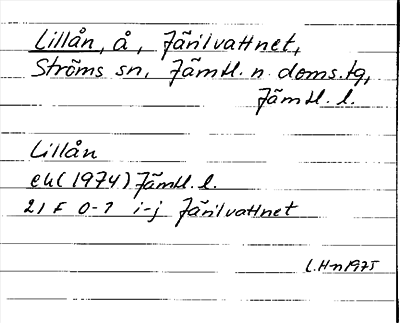 Lillån, å, Järilvattnet,
Ströms sn, Jämtl. n. doms.tg,
Jämtl. l.
Lillån
ek (1974) Jämtl. l.
21 F 0-1 i-j Järilvattnet
L.Hn 1975